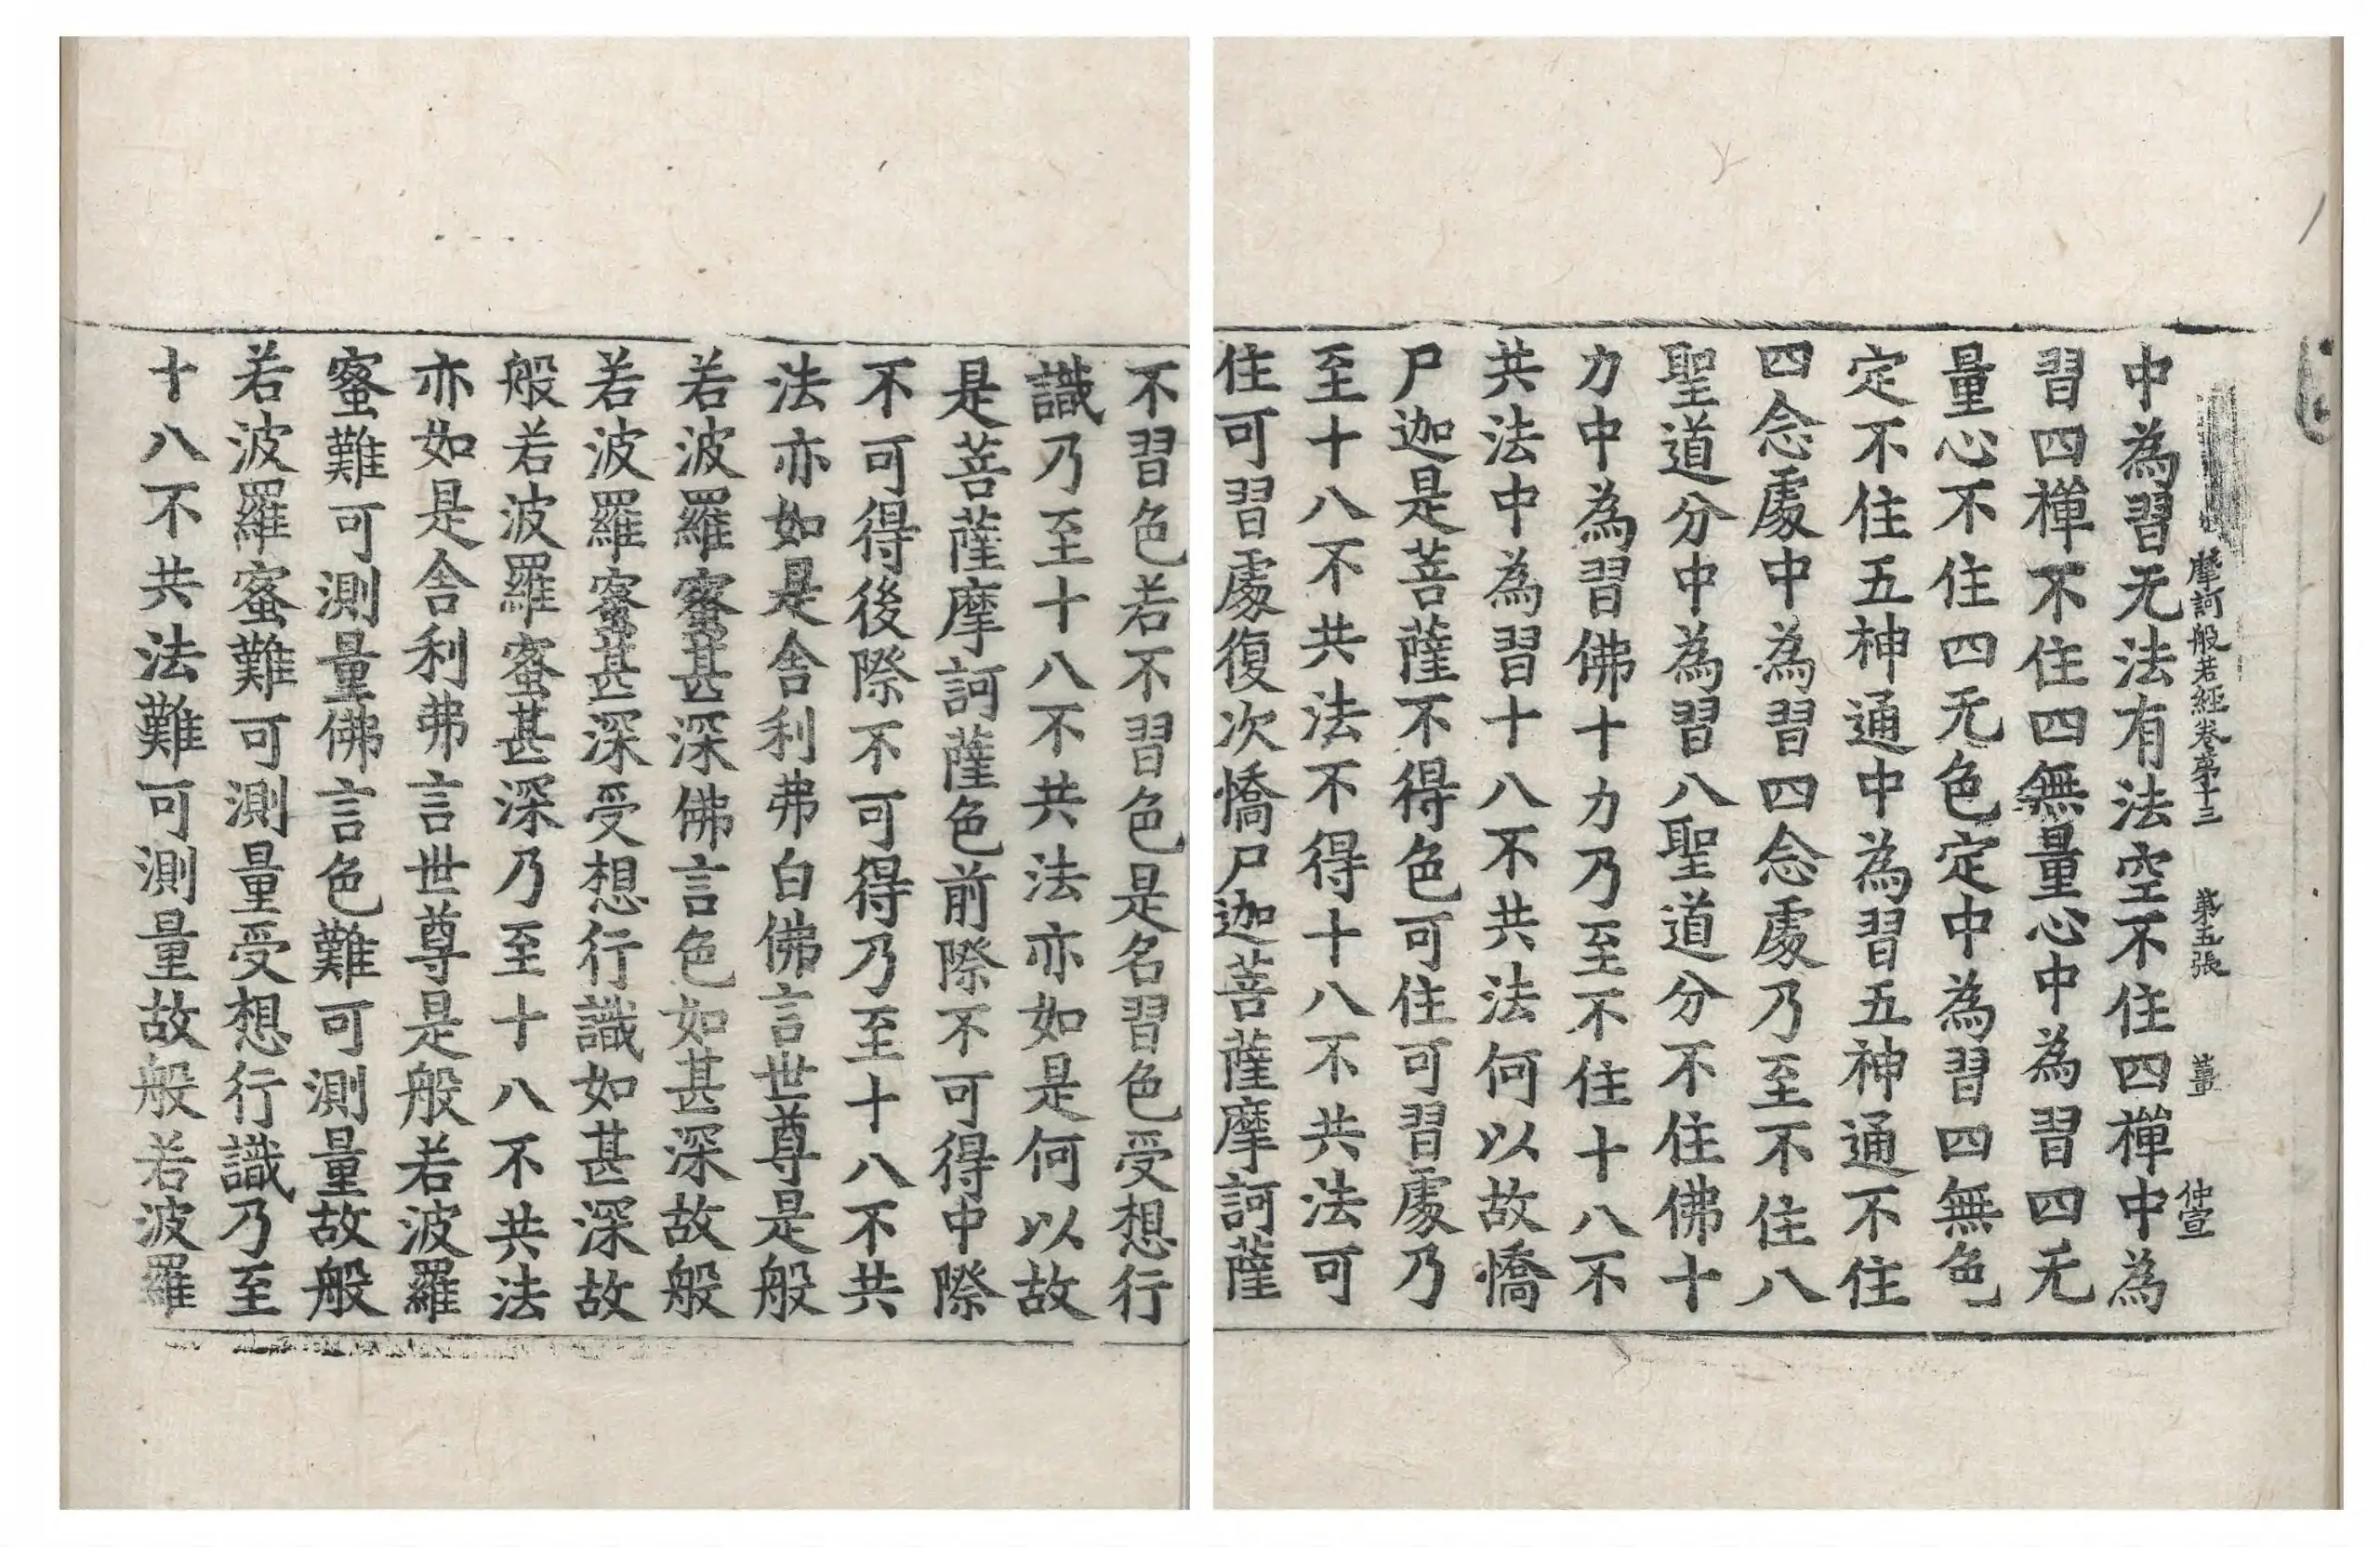 摩訶般若經卷第十三 第五張 仲宣
中為習无法有法空不住四禪中為
習四禪不住四無量心中為習四无
量心不住四无色定中為習四無色
定不住五神通中為習五神通不住
四念處中為習四念處乃至不住八
聖道分中為習八聖道分不住佛十
力中為習佛十力乃至不住十八不
共法中為習十八不共法何以故憍
尸迦是菩薩不得色可住可習處乃
至十八不共法不得十八不共法可
住可習處復次憍尸迦菩薩摩訶薩
不習色若不習色是名習色受想行
識乃至十八不共法亦如是何以故
是菩薩摩訶薩色前際不可得中際
不可得後際不可得乃至十八不共
法亦如是舍利弗白佛言世尊是般
若波羅蜜甚深佛言色如甚深故般
若波羅蜜甚深受想行識如甚深故
般若波羅蜜甚深乃至十八不共法
亦如是舍利弗言世尊是般若波羅
蜜難可測量佛言色難可測量故般
若波羅蜜難可測量受想行識乃至
十八不共法難可測量故般若波羅